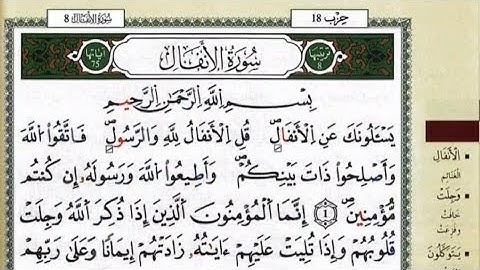 سُورَةُ الأَنْفَال 8
حِزْب 18
آيَاتُهَا 75
سُورَةُ الأَنْفَال
تَرْتِيبُهَا 8
بِسْمِ اللَّهِ الرَّحْمَٰنِ الرَّحِيمِ
يَسْـَٔلُونَكَ عَنِ الْأَنفَالِ قُلِ الْأَنفَالُ لِلَّهِ وَالرَّسُولِ فَاتَّقُوا اللَّهَ
وَأَصْلِحُوا ذَاتَ بَيْنِكُمْ وَأَطِيعُوا اللَّهَ وَرَسُولَهُ إِن كُنتُم
مُّؤْمِنِينَ 1 إِنَّمَا الْمُؤْمِنُونَ الَّذِينَ إِذَا ذُكِرَ اللَّهُ وَجِلَتْ
قُلُوبُهُمْ وَإِذَا تُلِيَتْ عَلَيْهِمْ ءَايَٰتُهُ زَادَتْهُمْ إِيمَانًا وَعَلَىٰ رَبِّهِمْ
الأَنْفَالِ
الْغَنَائِمِ
وَجِلَتْ
خَافَتْ
وَفَزِعَتْ
يَتَوَكَّلُونَ